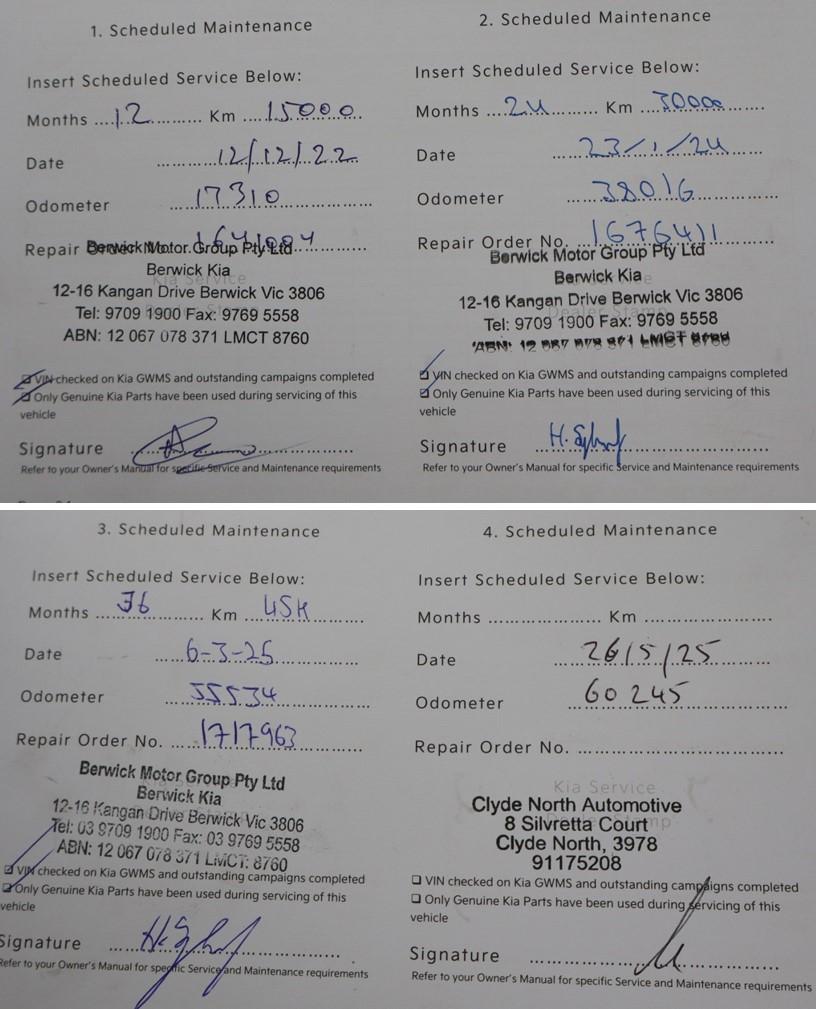 1. Scheduled Maintenance
Insert Scheduled Service Below:
Months 12 Km 15000
Date 12/12/22
Odometer 17310
Repair
Berwick Motor Group Pty Ltd
Berwick Kia
12-16 Kangan Drive Berwick Vic 3806
Tel: 9709 1900 Fax: 9769 5558
ABN: 12 067 078 371 LMCT 8760
VIN checked on Kia GWMS and outstanding campaigns completed
Only Genuine Kia Parts have been used during servicing of this
vehicle
Signature
Refer to your Owner's Manual for specific Service and Maintenance requirements
2. Scheduled Maintenance
Insert Scheduled Service Below:
Months 24 Km 30000
Date 23/1/24
Odometer 38016
Repair Order No. 1676411
Berwick Motor Group Pty Ltd
Berwick Kia
12-16 Kangan Drive Berwick Vic 3806
Tel: 9709 1900 Fax: 9769 5558
ABN: 12 067 078 371 LMCT 8760
VIN checked on Kia GWMS and outstanding campaigns completed
Only Genuine Kia Parts have been used during servicing of this
vehicle
Signature
Refer to your Owner's Manual for specific Service and Maintenance requirements
3. Scheduled Maintenance
Insert Scheduled Service Below:
Months 36 Km 45K
Date 6-3-25
Odometer 55534
Repair Order No. 1717963
Berwick Motor Group Pty Ltd
Berwick Kia
12-16 Kangan Drive Berwick Vic 3806
Tel: 03 9709 1900 Fax: 03 9769 5558
ABN: 12 067 078 371 LMCT: 8760
VIN checked on Kia GWMS and outstanding campaigns completed
Only Genuine Kia Parts have been used during servicing of this
vehicle
Signature
Refer to your Owner's Manual for specific Service and Maintenance requirements
4. Scheduled Maintenance
Insert Scheduled Service Below:
Months Km
Date 26/5/25
Odometer 60245
Repair Order No.
Kia Service
Dealer Stamp
Clyde North Automotive
8 Silvretta Court
Clyde North, 3978
91175208
VIN checked on Kia GWMS and outstanding campaigns completed
Only Genuine Kia Parts have been used during servicing of this
vehicle
Signature
Refer to your Owner's Manual for specific Service and Maintenance requirements